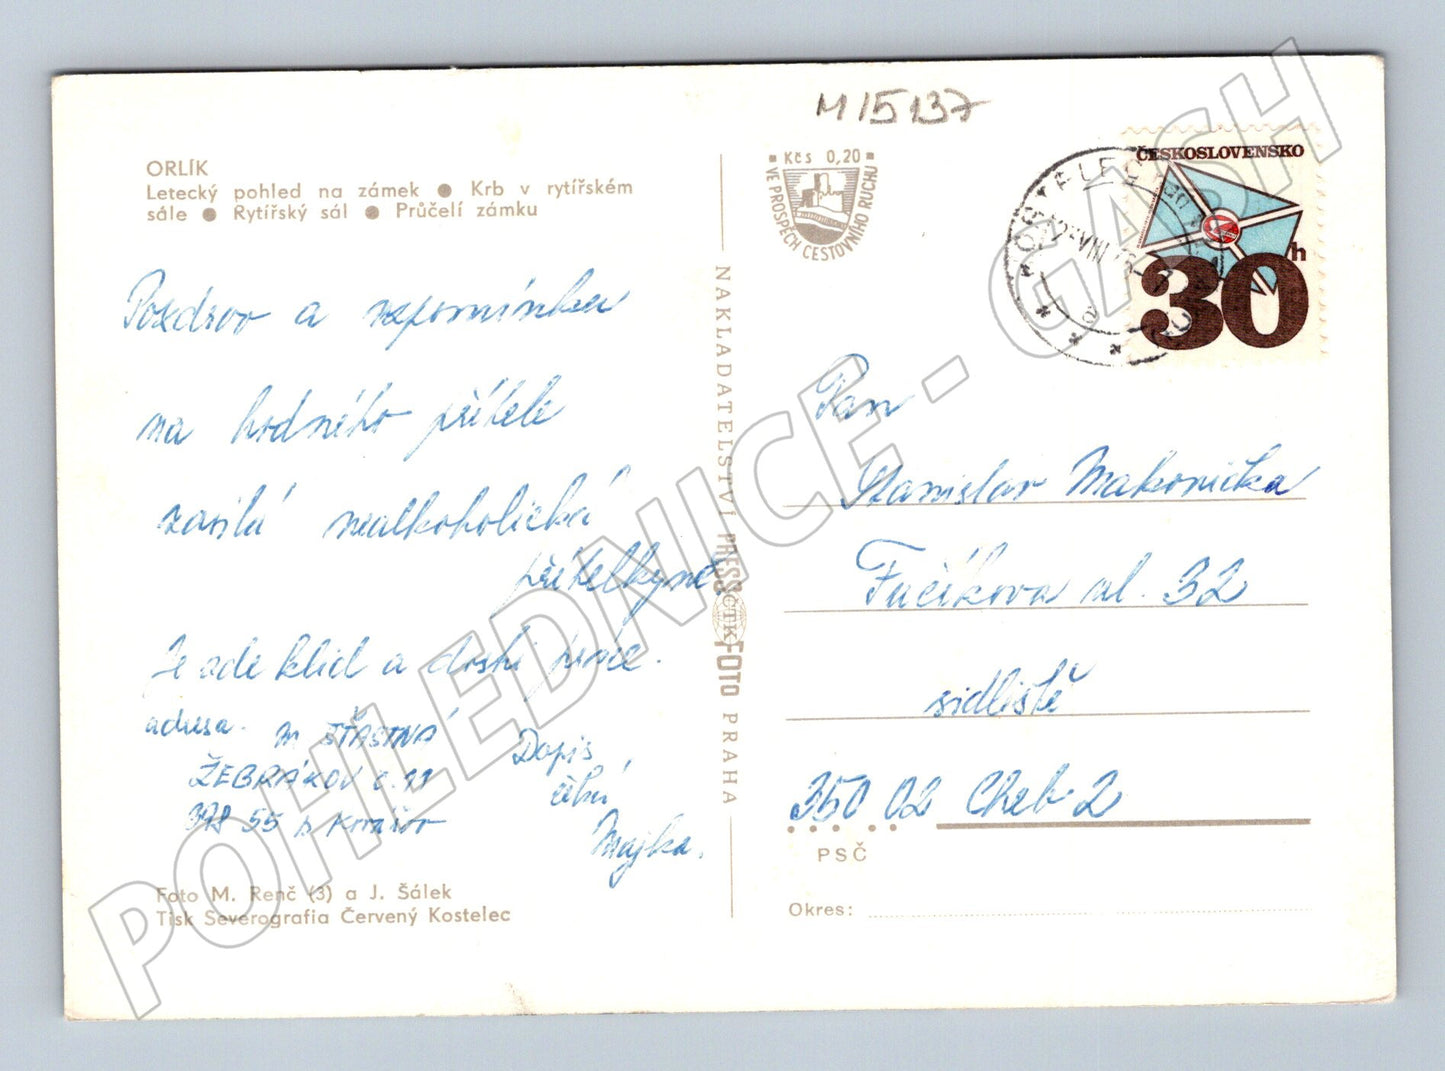 M 15137
ORLÍK
Letecký pohled na zámek ● Krb v rytířském
sále ● Rytířský sál ● Průčelí zámku
Pozdrav a vzpomínku
na hodného přítele
zasílá nealkoholická
přítelkyně
Je zde klid a dosti práce.
adresa. M. ŠŤASTNÁ
ŽEBRÁKOV č. 11
398 55 p. Kovářov
Dopis
čekej
Majka.
Foto M. Renč (3) a J. Šálek
Tisk Severografia Červený Kostelec
NAKLADATELSTVÍ PRESSFOTO PRAHA
ČTK
Kčs 0,20
VE PROSPĚCH CESTOVNÍHO RUCHU
ČESKOSLOVENSKO
30h
Pan
Stanislav Makovička
Fučíkova ul. 32
sídliště
350 02 Cheb 2
PSČ
Okres:
POHLEDNICE - GASH